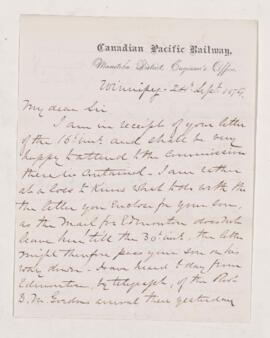 Canadian Pacific Railway,
Manitoba District Engineer's Office.
Winnipeg - 24 Sept. 1879
My dear Sir
I am in receipt of your letter
of the 15 inst. and shall be very
happy to attend to the commission
therein contained. I am rather
at a loss to know what to do with the
the letter you enclose for your son,
as the Mail for Edmonton does not
leave here till the 30 inst. the letter
might therefore pass your son on his
way down - I have heard to day from
Edmonton, by telegraph, of the Revd
D. M. Gordons arrival there yesterday